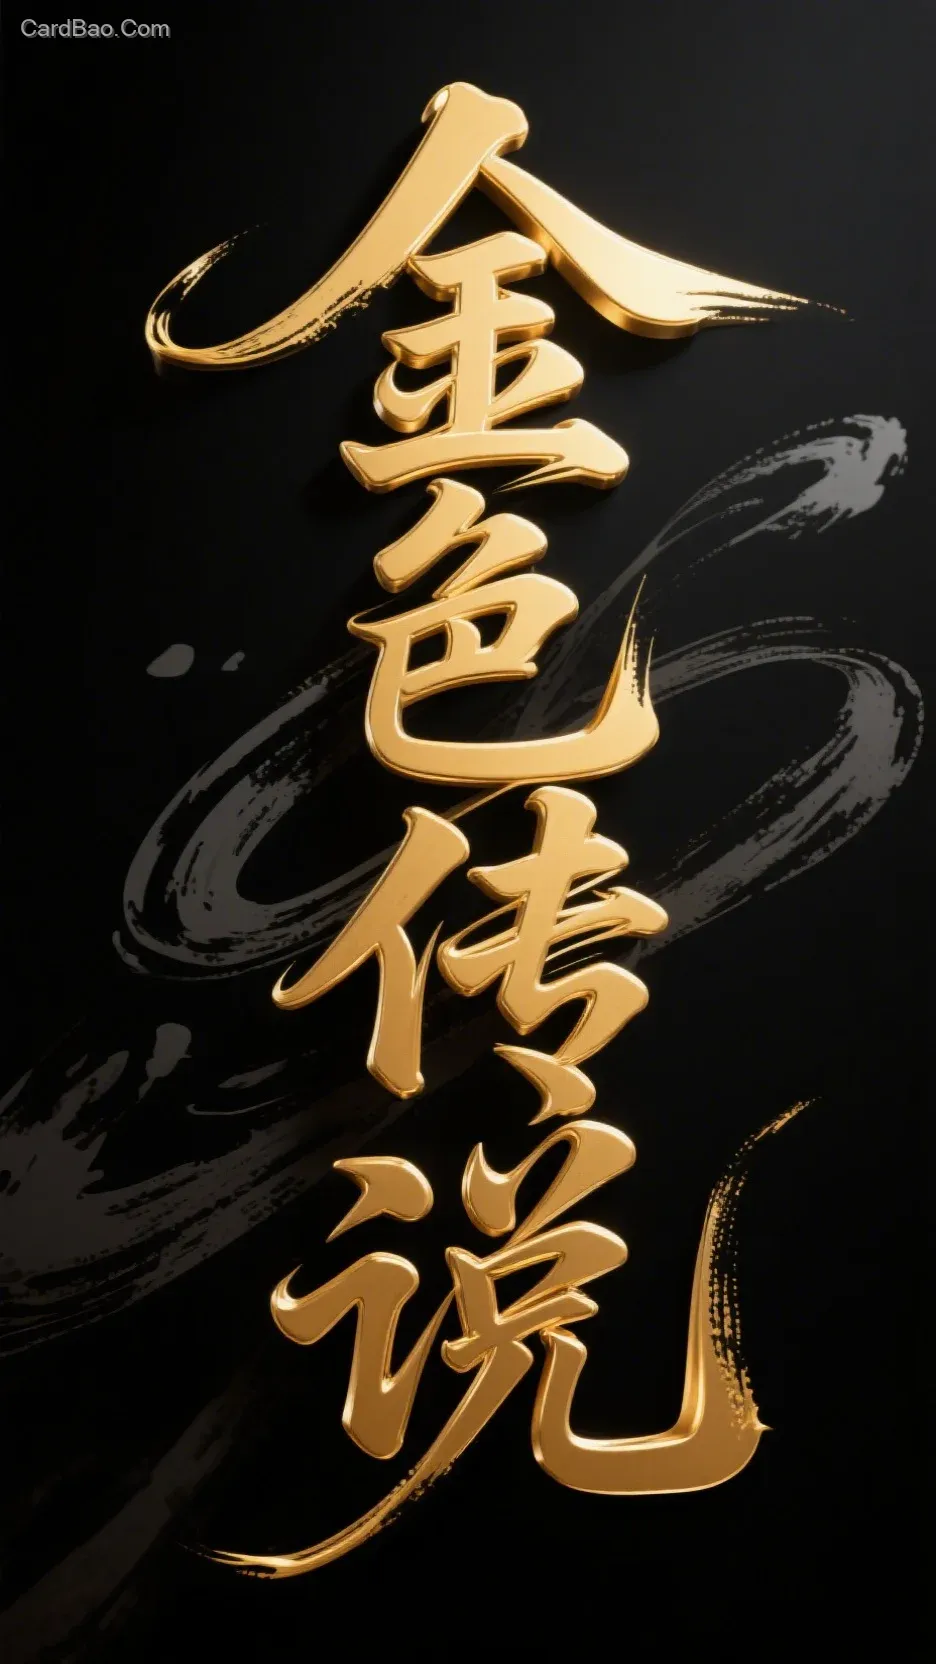 CardBao.Com
金色传说